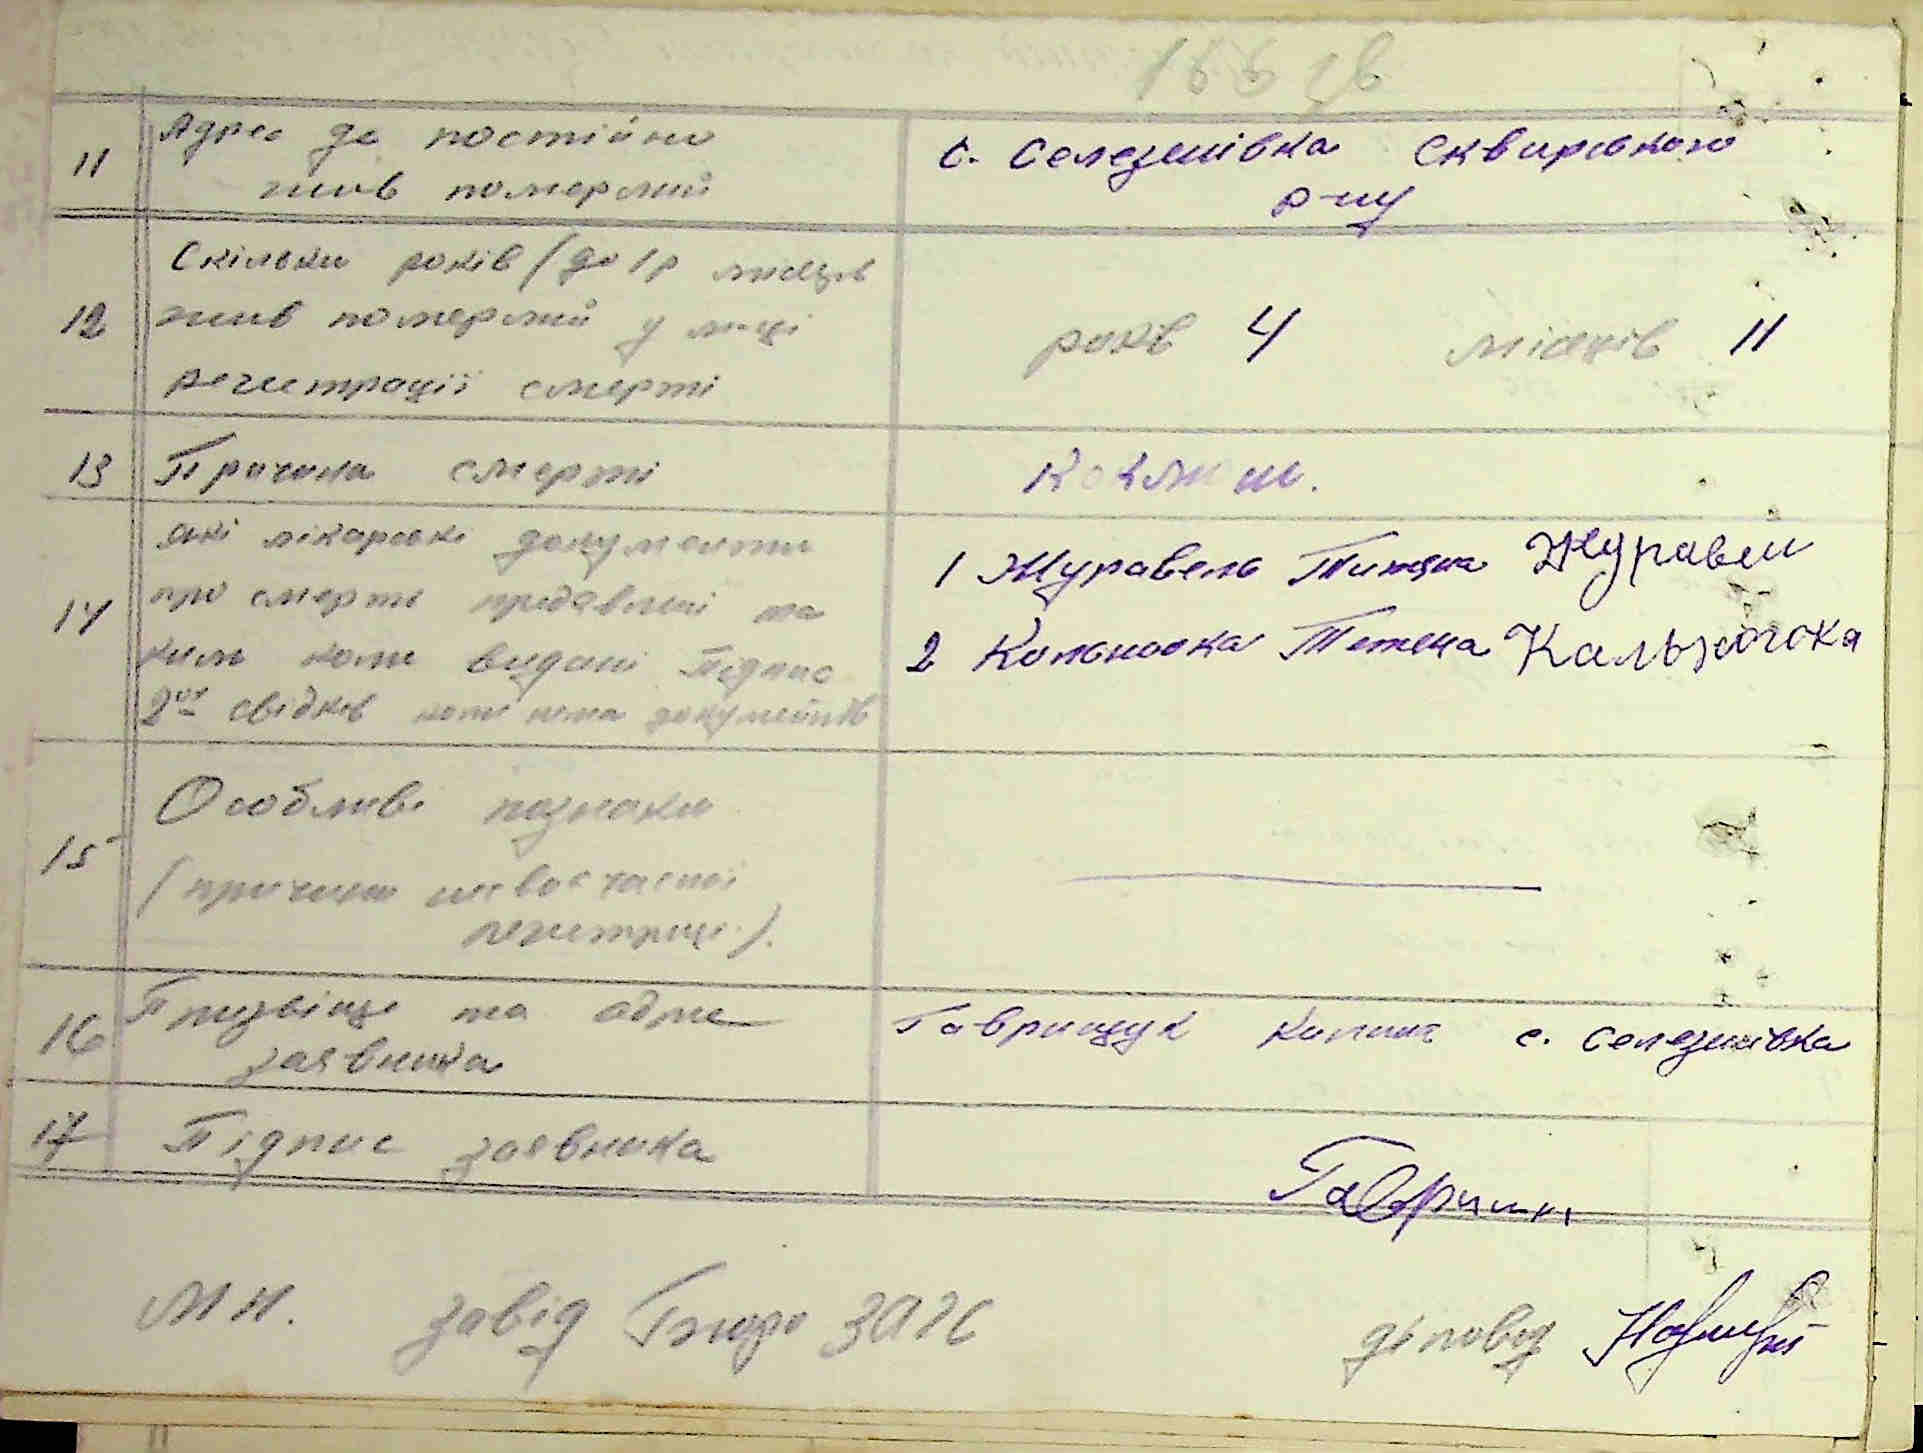 11 Адрес де постійно
жив померлий
с. Селезенівка Сквирського
р-ну
12 Скільки років (до 1 р місяців
жив померлий у місці
регистрації смерті
років 4 місяців 11
13 Причина смерті
Коклюш.
14 які лікарські документи
про смерть предявлені та
ким коли видані Підпис
2ох свідків коли нема документів
1 Журавель Титяна Журавель
2 Кольносока Тетяна
15 Особливі познаки
(причини несвоєчасної
регистрації).
16 Призвіще та адрес
заявника
Гаврищук Килина с. Селезенівка
17 Підпис заявника
Гаврищук
М П. завід Бюро ЗАГС
діловод